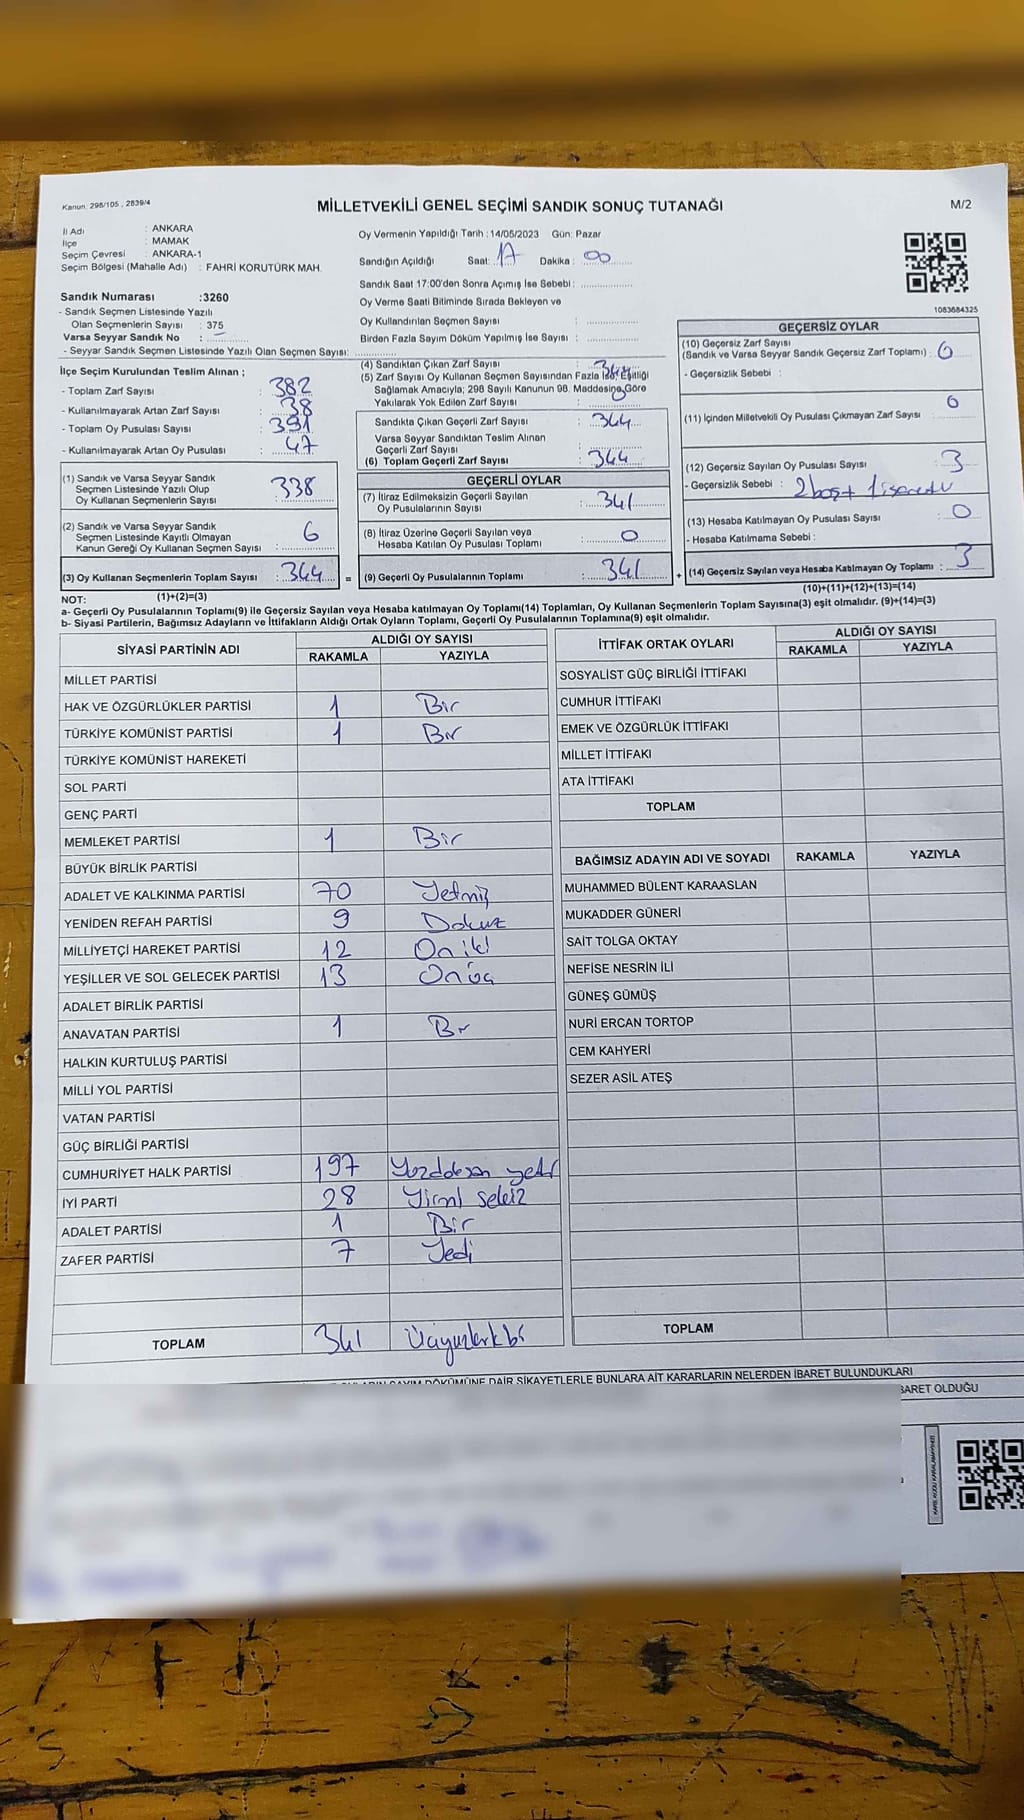 Kanun: 298/105 , 2839/4
MİLLETVEKİLİ GENEL SEÇİMİ SANDIK SONUÇ TUTANAĞI
M/2
İl Adı : ANKARA
İlçe : MAMAK
Seçim Çevresi : ANKARA-1
Seçim Bölgesi (Mahalle Adı) : FAHRİ KORUTÜRK MAH.
Oy Vermenin Yapıldığı Tarih : 14/05/2023 Gün: Pazar
Sandığın Açıldığı Saat: 17 Dakika : 00
Sandık Saat 17:00'den Sonra Açımış İse Sebebi :
Oy Verme Saati Bitiminde Sırada Bekleyen ve
Oy Kullandırılan Seçmen Sayısı :
Birden Fazla Sayım Döküm Yapılmış İse Sayısı :
1083684325
Sandık Numarası :3260
- Sandık Seçmen Listesinde Yazılı
Olan Seçmenlerin Sayısı : 375
Varsa Seyyar Sandık No :
- Seyyar Sandık Seçmen Listesinde Yazılı Olan Seçmen Sayısı:
İlçe Seçim Kurulundan Teslim Alınan ;
- Toplam Zarf Sayısı : 382
- Kullanılmayarak Artan Zarf Sayısı : 38
- Toplam Oy Pusulası Sayısı : 391
- Kullanılmayarak Artan Oy Pusulası : 47
(1) Sandık ve Varsa Seyyar Sandık
Seçmen Listesinde Yazılı Olup
Oy Kullanan Seçmenlerin Sayısı : 338
(2) Sandık ve Varsa Seyyar Sandık
Seçmen Listesinde Kayıtlı Olmayan
Kanun Gereği Oy Kullanan Seçmen Sayısı : 6
(3) Oy Kullanan Seçmenlerin Toplam Sayısı : 344
(4) Sandıktan Çıkan Zarf Sayısı : 344
(5) Zarf Sayısı Oy Kullanan Seçmen Sayısından Fazla İse, Eşitliği
Sağlamak Amacıyla; 298 Sayılı Kanunun 98. Maddesine Göre
Yakılarak Yok Edilen Zarf Sayısı : 0
Sandıkta Çıkan Geçerli Zarf Sayısı : 344
Varsa Seyyar Sandıktan Teslim Alınan
Geçerli Zarf Sayısı :
(6) Toplam Geçerli Zarf Sayısı : 344
GEÇERLİ OYLAR
(7) İtiraz Edilmeksizin Geçerli Sayılan
Oy Pusulalarının Sayısı : 341
(8) İtiraz Üzerine Geçerli Sayılan veya
Hesaba Katılan Oy Pusulası Toplamı : 0
= (9) Geçerli Oy Pusulalarının Toplamı : 341
GEÇERSİZ OYLAR
(10) Geçersiz Zarf Sayısı
(Sandık ve Varsa Seyyar Sandık Geçersiz Zarf Toplamı) : 0
- Geçersizlik Sebebi :
(11) İçinden Milletvekili Oy Pusulası Çıkmayan Zarf Sayısı : 0
(12) Geçersiz Sayılan Oy Pusulası Sayısı : 3
- Geçersizlik Sebebi : 2 boş + 1
(13) Hesaba Katılmayan Oy Pusulası Sayısı : 0
- Hesaba Katılmama Sebebi :
+ (14) Geçersiz Sayılan veya Hesaba Katılmayan Oy Toplamı : 3
NOT: (1)+(2)=(3)
(10)+(11)+(12)+(13)=(14)
a- Geçerli Oy Pusulalarının Toplamı(9) ile Geçersiz Sayılan veya Hesaba katılmayan Oy Toplamı(14) Toplamları, Oy Kullanan Seçmenlerin Toplam Sayısına(3) eşit olmalıdır. (9)+(14)=(3)
b- Siyasi Partilerin, Bağımsız Adayların ve İttifakların Aldığı Ortak Oyların Toplamı, Geçerli Oy Pusulalarının Toplamına(9) eşit olmalıdır.
SİYASİ PARTİNİN ADI ALDIĞI OY SAYISI
RAKAMLA YAZIYLA
MİLLET PARTİSİ
HAK VE ÖZGÜRLÜKLER PARTİSİ 1 Bir
TÜRKİYE KOMÜNİST PARTİSİ 1 Bir
TÜRKİYE KOMÜNİST HAREKETİ
SOL PARTİ
GENÇ PARTİ
MEMLEKET PARTİSİ 1 Bir
BÜYÜK BİRLİK PARTİSİ
ADALET VE KALKINMA PARTİSİ 70 Yetmiş
YENİDEN REFAH PARTİSİ 9 Dokuz
MİLLİYETÇİ HAREKET PARTİSİ 12 On iki
YEŞİLLER VE SOL GELECEK PARTİSİ 13 Onüç
ADALET BİRLİK PARTİSİ
ANAVATAN PARTİSİ 1 Bir
HALKIN KURTULUŞ PARTİSİ
MİLLİ YOL PARTİSİ
VATAN PARTİSİ
GÜÇ BİRLİĞİ PARTİSİ
CUMHURİYET HALK PARTİSİ 197 Yüzdoksan yedi
İYİ PARTİ 28 Yirmi sekiz
ADALET PARTİSİ 1 Bir
ZAFER PARTİSİ 7 Yedi
TOPLAM 341 Üçyüzkırkbir
İTTİFAK ORTAK OYLARI ALDIĞI OY SAYISI
RAKAMLA YAZIYLA
SOSYALİST GÜÇ BİRLİĞİ İTTİFAKI
CUMHUR İTTİFAKI
EMEK VE ÖZGÜRLÜK İTTİFAKI
MİLLET İTTİFAKI
ATA İTTİFAKI
TOPLAM
BAĞIMSIZ ADAYIN ADI VE SOYADI RAKAMLA YAZIYLA
MUHAMMED BÜLENT KARAASLAN
MUKADDER GÜNERİ
SAİT TOLGA OKTAY
NEFİSE NESRİN İLİ
GÜNEŞ GÜMÜŞ
NURİ ERCAN TORTOP
CEM KAHYERİ
SEZER ASİL ATEŞ
TOPLAM
DÖKÜMÜNE DAİR ŞİKAYETLERLE BUNLARA AİT KARARLARIN NELERDEN İBARET BULUNDUKLARI
İBARET OLDUĞU